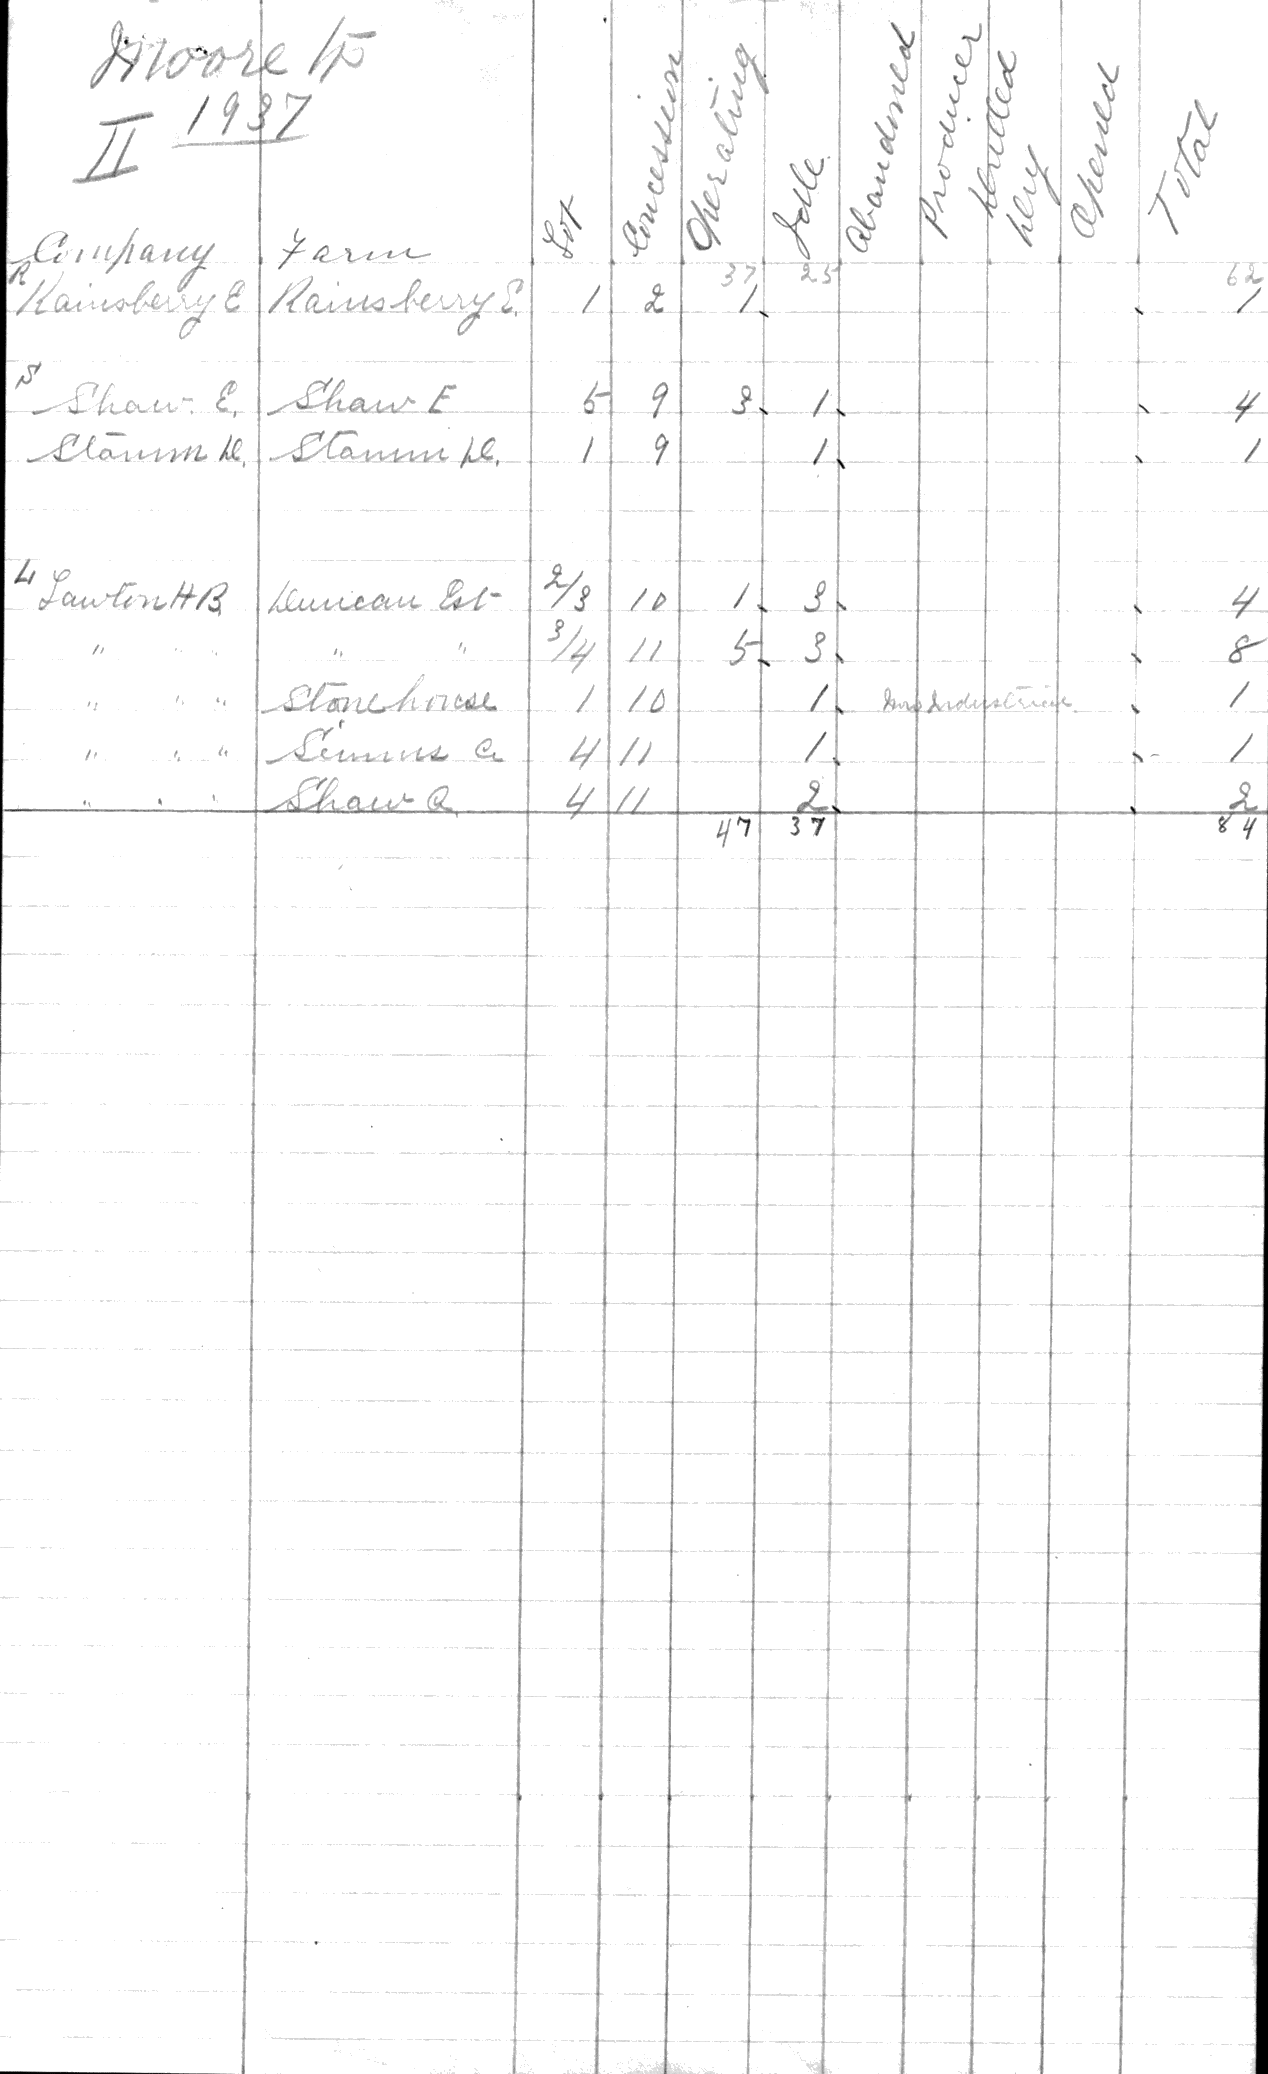 Moore Tp
II 1937
Company Farm Lot Concession Operating Idle Abandoned Producer Drilled Dry Opened Total
37 25 62
R
Rainsberry E Rainsberry E. 1 2 1 1
S
Shaw E. Shaw E 5 9 3 1 4
Stamm D. Stamm D. 1 9 1 1
L
Lawton H B. Duncan Est 2/3 10 1 3 4
" " " " " 3/4 11 5 3 8
" " " Stonehouse 1 10 1 Industrial 1
" " " Simms C 4 11 1 1
" " " Shaw A 4 11 2 2
47 37 84